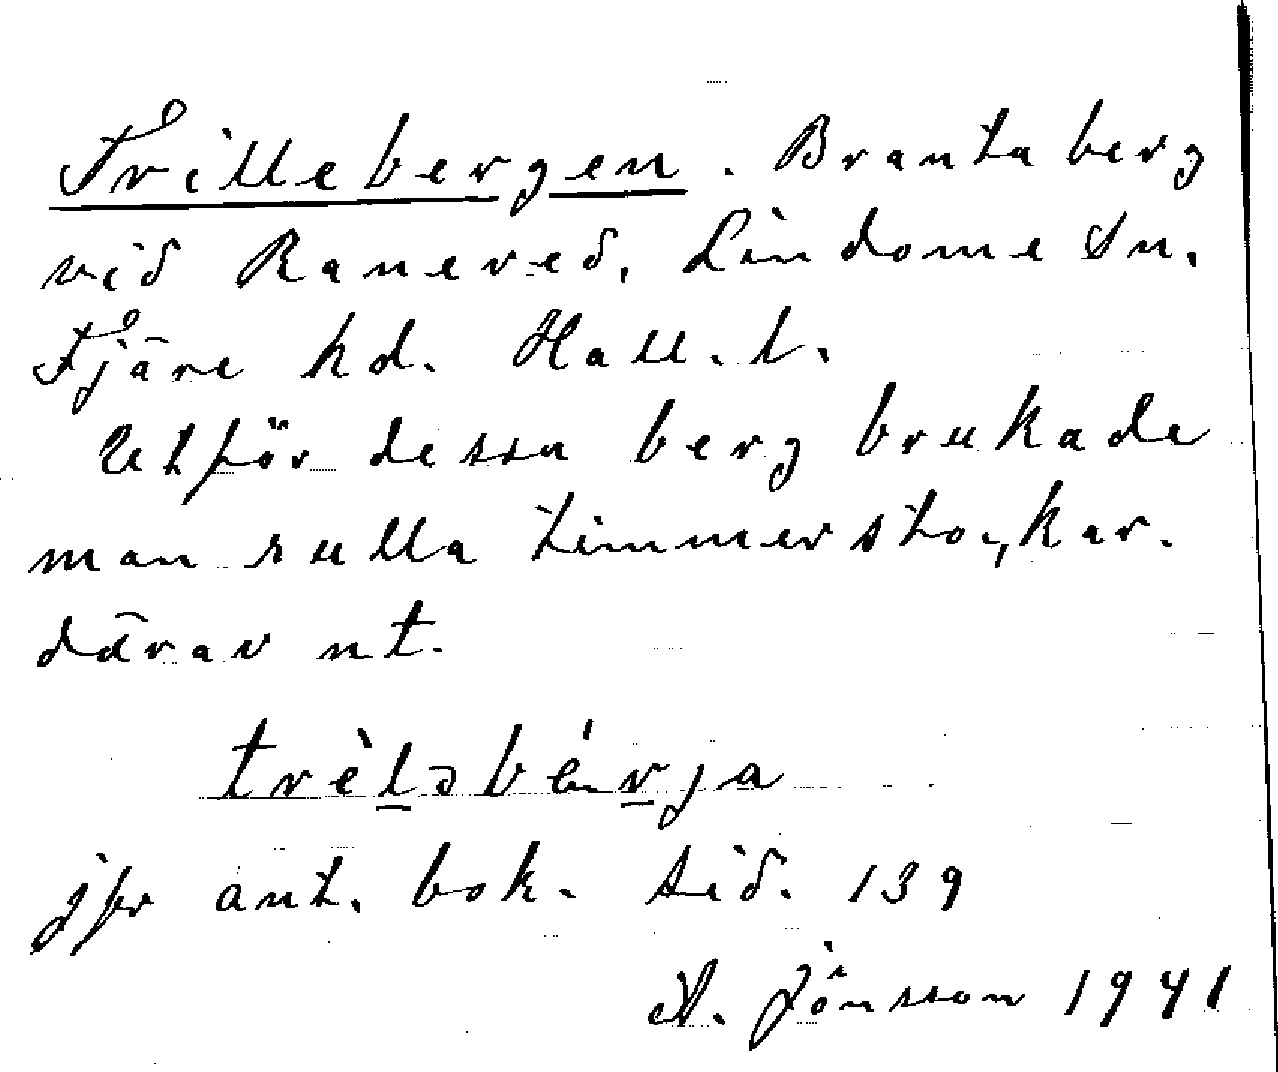 Trillebergen. Branta berg
vid Ranered, Lindome sn.
Fjäre hd. Hall. l.
Utför dessa berg brukade
man rulla timmerstockar.
därav nt.
trèləbérja
jfr ant. bok. sid. 139
A. Jönsson 1941